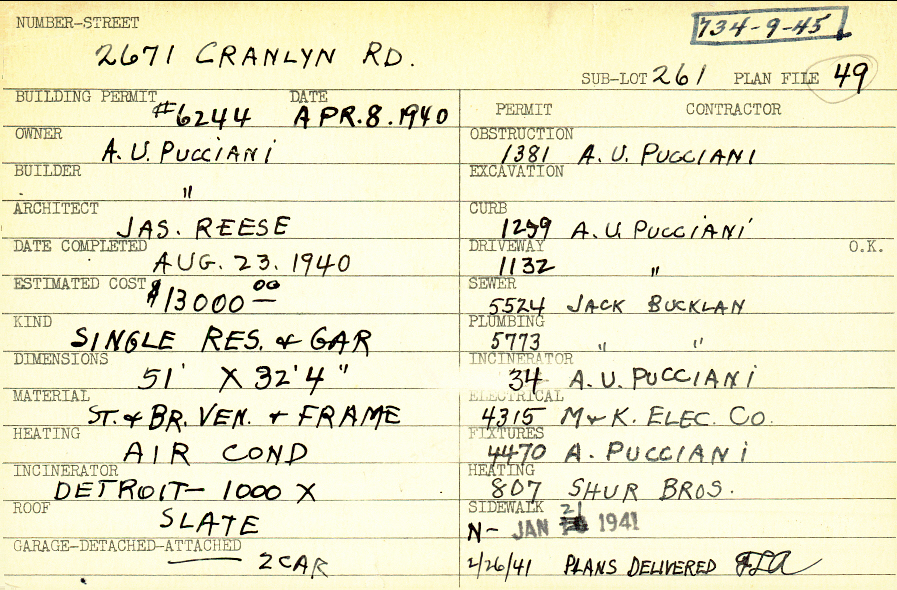 NUMBER-STREET
734-9-45
2671 CRANLYN RD.
SUB-LOT 261 PLAN FILE 49
BUILDING PERMIT DATE
#6244 APR. 8. 1940
OWNER
A. U. PUCCIANI
BUILDER
"
ARCHITECT
JAS. REESE
DATE COMPLETED
AUG. 23. 1940
ESTIMATED COST
$13000 00
KIND
SINGLE RES. & GAR
DIMENSIONS
51' X 32'4"
MATERIAL
ST. & BR. VEN. & FRAME
HEATING
AIR COND
INCINERATOR
DETROIT- 1000 X
ROOF
SLATE
GARAGE-DETACHED-ATTACHED
2 CAR
PERMIT CONTRACTOR
OBSTRUCTION
1381 A. U. PUCCIANI
EXCAVATION
CURB
1259 A. U. PUCCIANI
DRIVEWAY O.K.
1132 "
SEWER
5524 JACK BUCKLAN
PLUMBING
5773 " "
INCINERATOR
34 A. U. PUCCIANI
ELECTRICAL
4315 M & K. ELEC. CO.
FIXTURES
4470 A. PUCCIANI
HEATING
807 SHUR BROS.
SIDEWALK
21
N- JAN 1941
2/26/41 PLANS DELIVERED